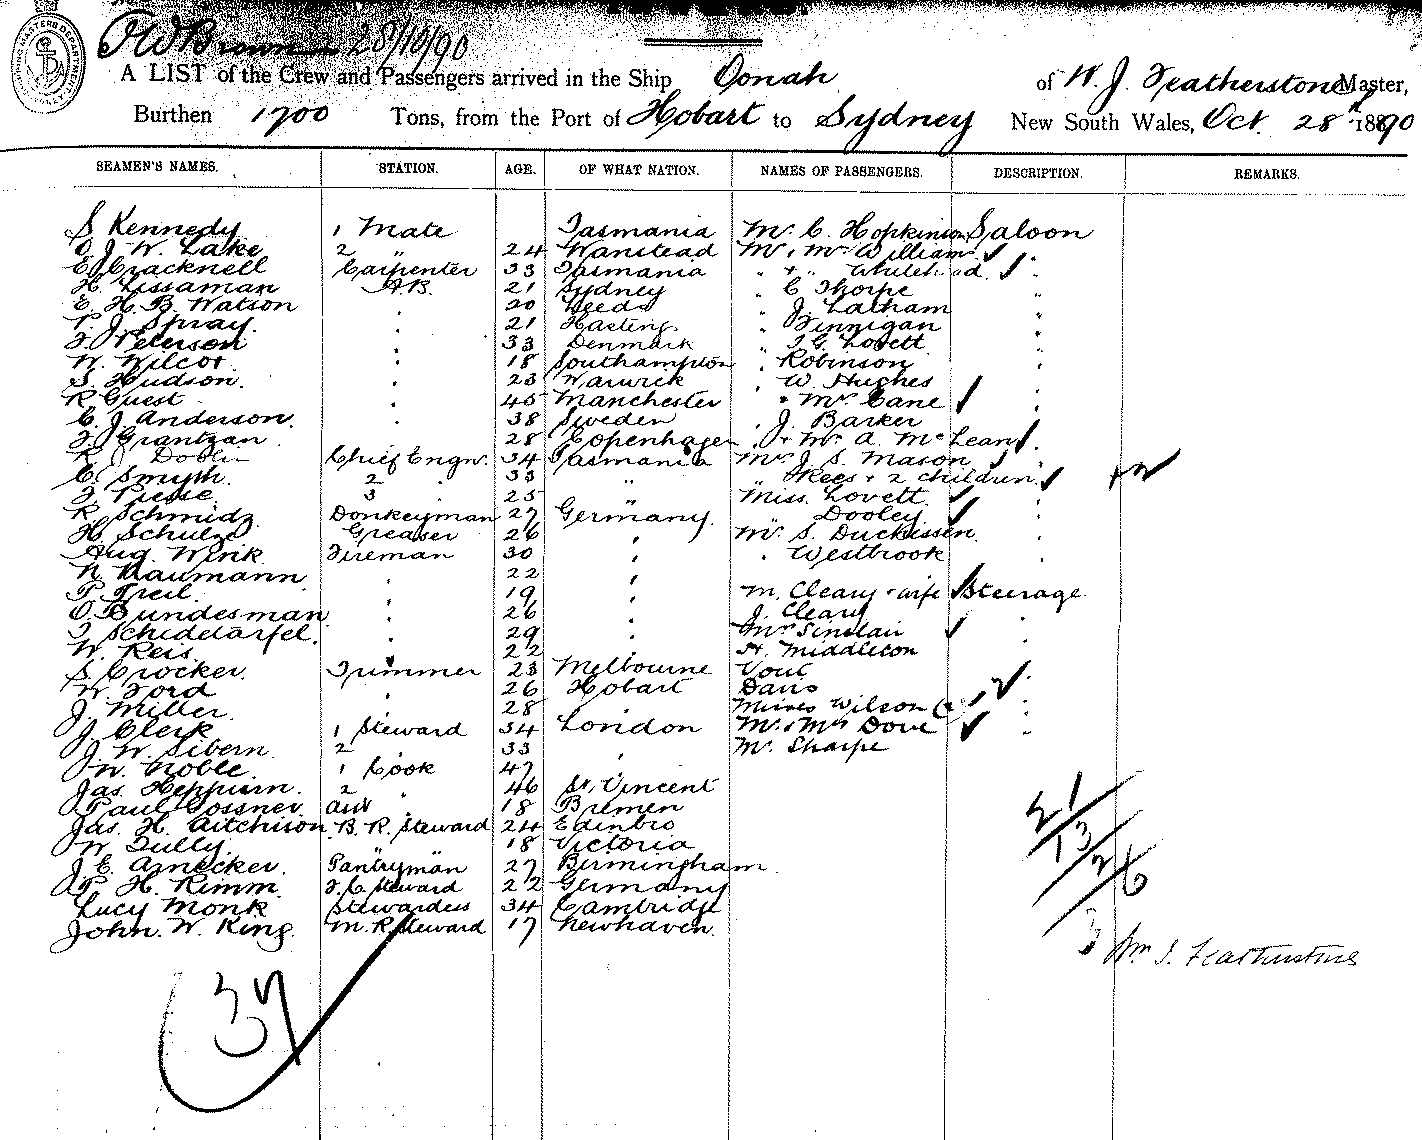 28/10/90
A LIST of the Crew and Passengers arrived in the Ship Oonah of W. J. Featherstone Master,
Burthen 1700 Tons, from the Port of Hobart to Sydney New South Wales, Oct. 28th 1890
SEAMEN'S NAMES. STATION. AGE. OF WHAT NATION. NAMES OF PASSENGERS. DESCRIPTION. REMARKS.
S Kennedy 1 Mate Tasmania Mr. C. Hopkinson Saloon
O J. W. Lake 2 " 24 Wanstead Mr & Mrs William "
E Cracknell Carpenter 33 Tasmania " + " Whitehead "
H. Lissaman A.B. 21 Sydney " C Thorpe "
E. H. B. Watson " 20 Leeds " J. Latham "
T. J. Spray " 21 Hastings " Finnigan "
J. Peterson " 33 Denmark " T G. Lovett "
W. Wilcot " 18 Southampton " Robinson "
S. Hudson. " 23 Warwick " W. Hughes "
R Guest " 45 Manchester " Mrs Cane "
C. J. Anderson. " 38 Sweden " J. Barker "
J. Grantzan " 28 Copenhagen " + Mrs A. McLean "
R J Doblin Chief Engnr. 34 Tasmania Mrs J. S. Mason "
C. Smyth. 2 " 33 " " Skees + 2 children "
J. Piesse 3 " 25 " Miss. Lovett "
R. Schmidz Donkeyman 27 Germany. " Dooley "
H. Schulz Greaser 26 " Mr. S. Duckissen "
Aug. Wink Fireman 30 " " Westbrook "
N Naumann " 22 "
P. Treil. " 19 " M. Cleary + wife Steerage
O. Bundesman " 26 " J. Cleary "
Schiddarfel. " 29 " Mrs Sinclair "
W. Reis " 22 " H. Middleton
S. Crocker. Trimmer 23 Melbourne Vout "
W. Ford " 26 Hobart Davis "
J. Miller. " 28 " Wilson (2) "
J. Clerk 1 Steward 34 London Mr & Mrs Dove "
J. W. Sibern 2 " 33 " Mr. Sharpe
W. Noble. 1 Cook 47 "
Jas. Hepburn. 2 " 46 St. Vincent
Paul Gossner 18 Bremen
Jas. H. Aitchison B. R. Steward 24 Edinbro
W. Tully. " 18 Victoria
J. E. Arnecker. Pantryman 27 Birmingham
P. H. Rimm F. C Steward 22 Germany
Lucy Monk Stewardess 34 Cambridge
John. W. King. M. R. Steward 17 Newhaven.
21
13
2
6
3
Wm J. Featherstone
37